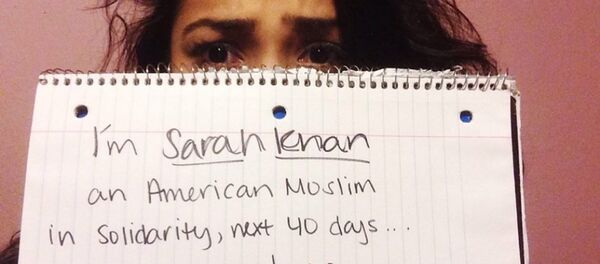 I'm Sarah Khan
an American Muslim
in Solidarity, next 40 days...